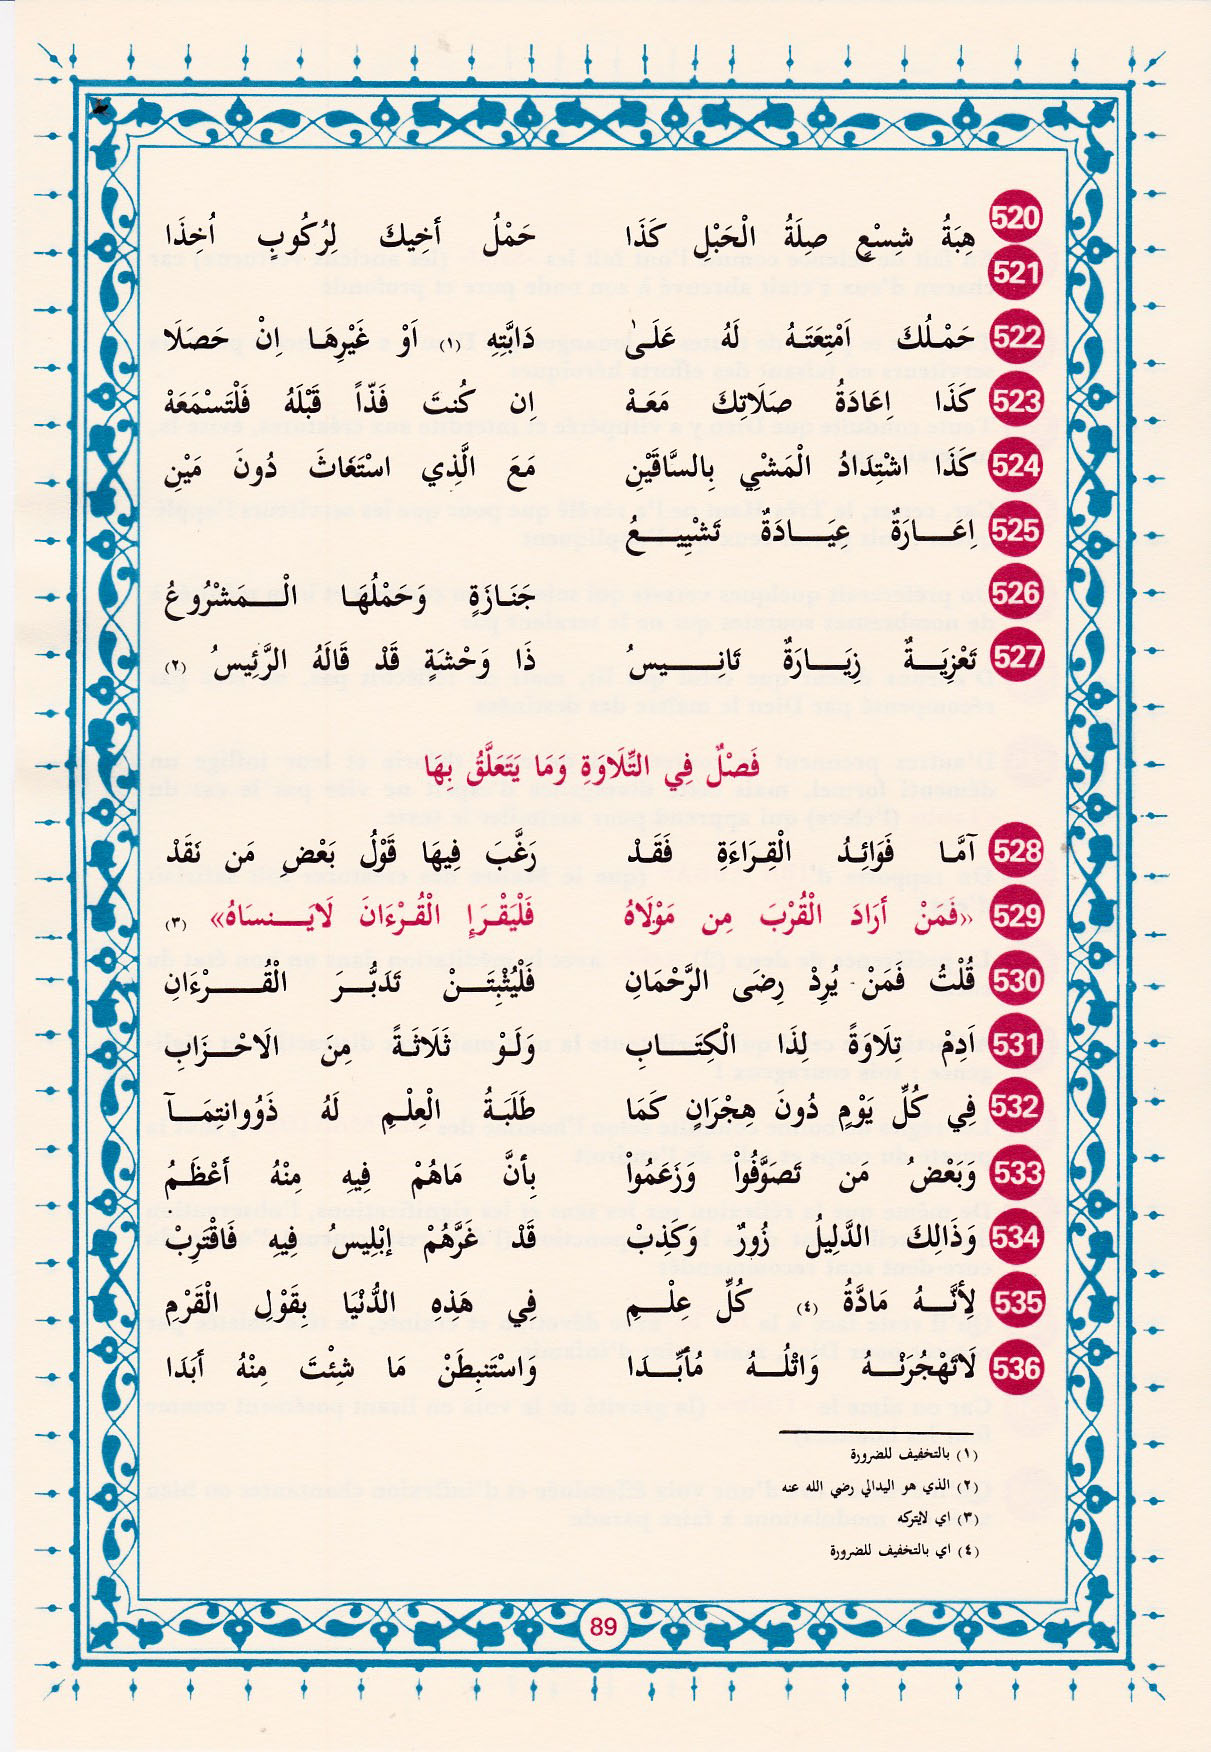 520 هِبَةُ شِسْعٍ صِلَةُ الْحَبْلِ كَذَا حَمْلُ أَخِيكَ لِرُكُوبٍ اُخِذَا
521
522 حَمْلُكَ اَمْتِعَتَهُ لَهُ عَلَىٰ دَابَّتِهِ (١) اَوْ غَيْرِهَا اِنْ حَصَلَا
523 كَذَا اِعَادَةُ صَلَاتِكَ مَعَهْ اِن كُنتَ فَذّاً قَبْلَهُ فَلْتَسْمَعَهْ
524 كَذَا اشْتِدَادُ الْمَشْيِ بِالسَّاقَيْنِ مَعَ الَّذِي اسْتَغَاثَ دُونَ مَيْنِ
525 اِعَارَةٌ عِيَادَةٌ تَشْيِيعُ
526 جَنَازَةٍ وَحَمْلُهَا الْمَشْرُوعُ
527 تَعْزِيَةٌ زِيَارَةٌ تَانِيسُ ذَا وَحْشَةٍ قَدْ قَالَهُ الرَّئِيسُ (٢)
فَصْلٌ فِي التِّلَاوَةِ وَمَا يَتَعَلَّقُ بِهَا
528 آمَّا فَوَائِدُ الْقِرَاءَةِ فَقَدْ رَغَّبَ فِيهَا قَوْلُ بَعْضِ مَن نَقَدْ
529 «فَمَنْ أَرَادَ الْقُرْبَ مِن مَوْلَاهُ فَلْيَقْرَإِ الْقُرْءَانَ لَايَنسَاهُ» (٣)
530 قُلْتُ فَمَنْ يُرِدْ رِضَى الرَّحْمَانِ فَلْيُثْبِتَنْ تَدَبُّرَ الْقُرْءَانِ
531 اَدِمْ تِلَاوَةً لِذَا الْكِتَابِ وَلَوْ ثَلَاثَةً مِنَ الَاحْزَابِ
532 فِي كُلِّ يَوْمٍ دُونَ هِجْرَانٍ كَمَا طَلَبَةُ الْعِلْمِ لَهُ ذَوُوانتِمَآ
533 وَبَعْضُ مَن تَصَوَّفُواْ وَزَعَمُوا بِأَنَّ مَاهُمْ فِيهِ مِنْهُ أَعْظَمُ
534 وَذَالِكَ الدَّلِيلُ زُورٌ وَكَذِبْ قَدْ غَرَّهُمْ إبْلِيسُ فِيهِ فَاقْتَرِبْ
535 لِأَنَّهُ مَادَّةُ (٤) كُلِّ عِلْمِ فِي هَذِهِ الدُّنْيَا بِقَوْلِ الْقَرْمِ
536 لَاتَهْجُرَنْهُ وَاتْلُهُ مُأَبِّدَا وَاسْتَنبِطَنْ مَا شِئْتَ مِنْهُ أَبَدَا
(١) بالتخفيف للضرورة
(٢) الذي هو اليدالي رضي الله عنه
(٣) اي لايتركه
(٤) اي بالتخفيف للضرورة
89